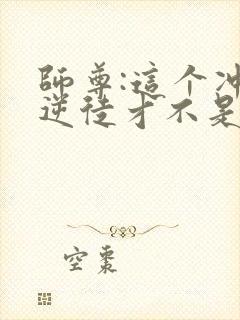 師尊:這个冲
逆徒才不是
空枣